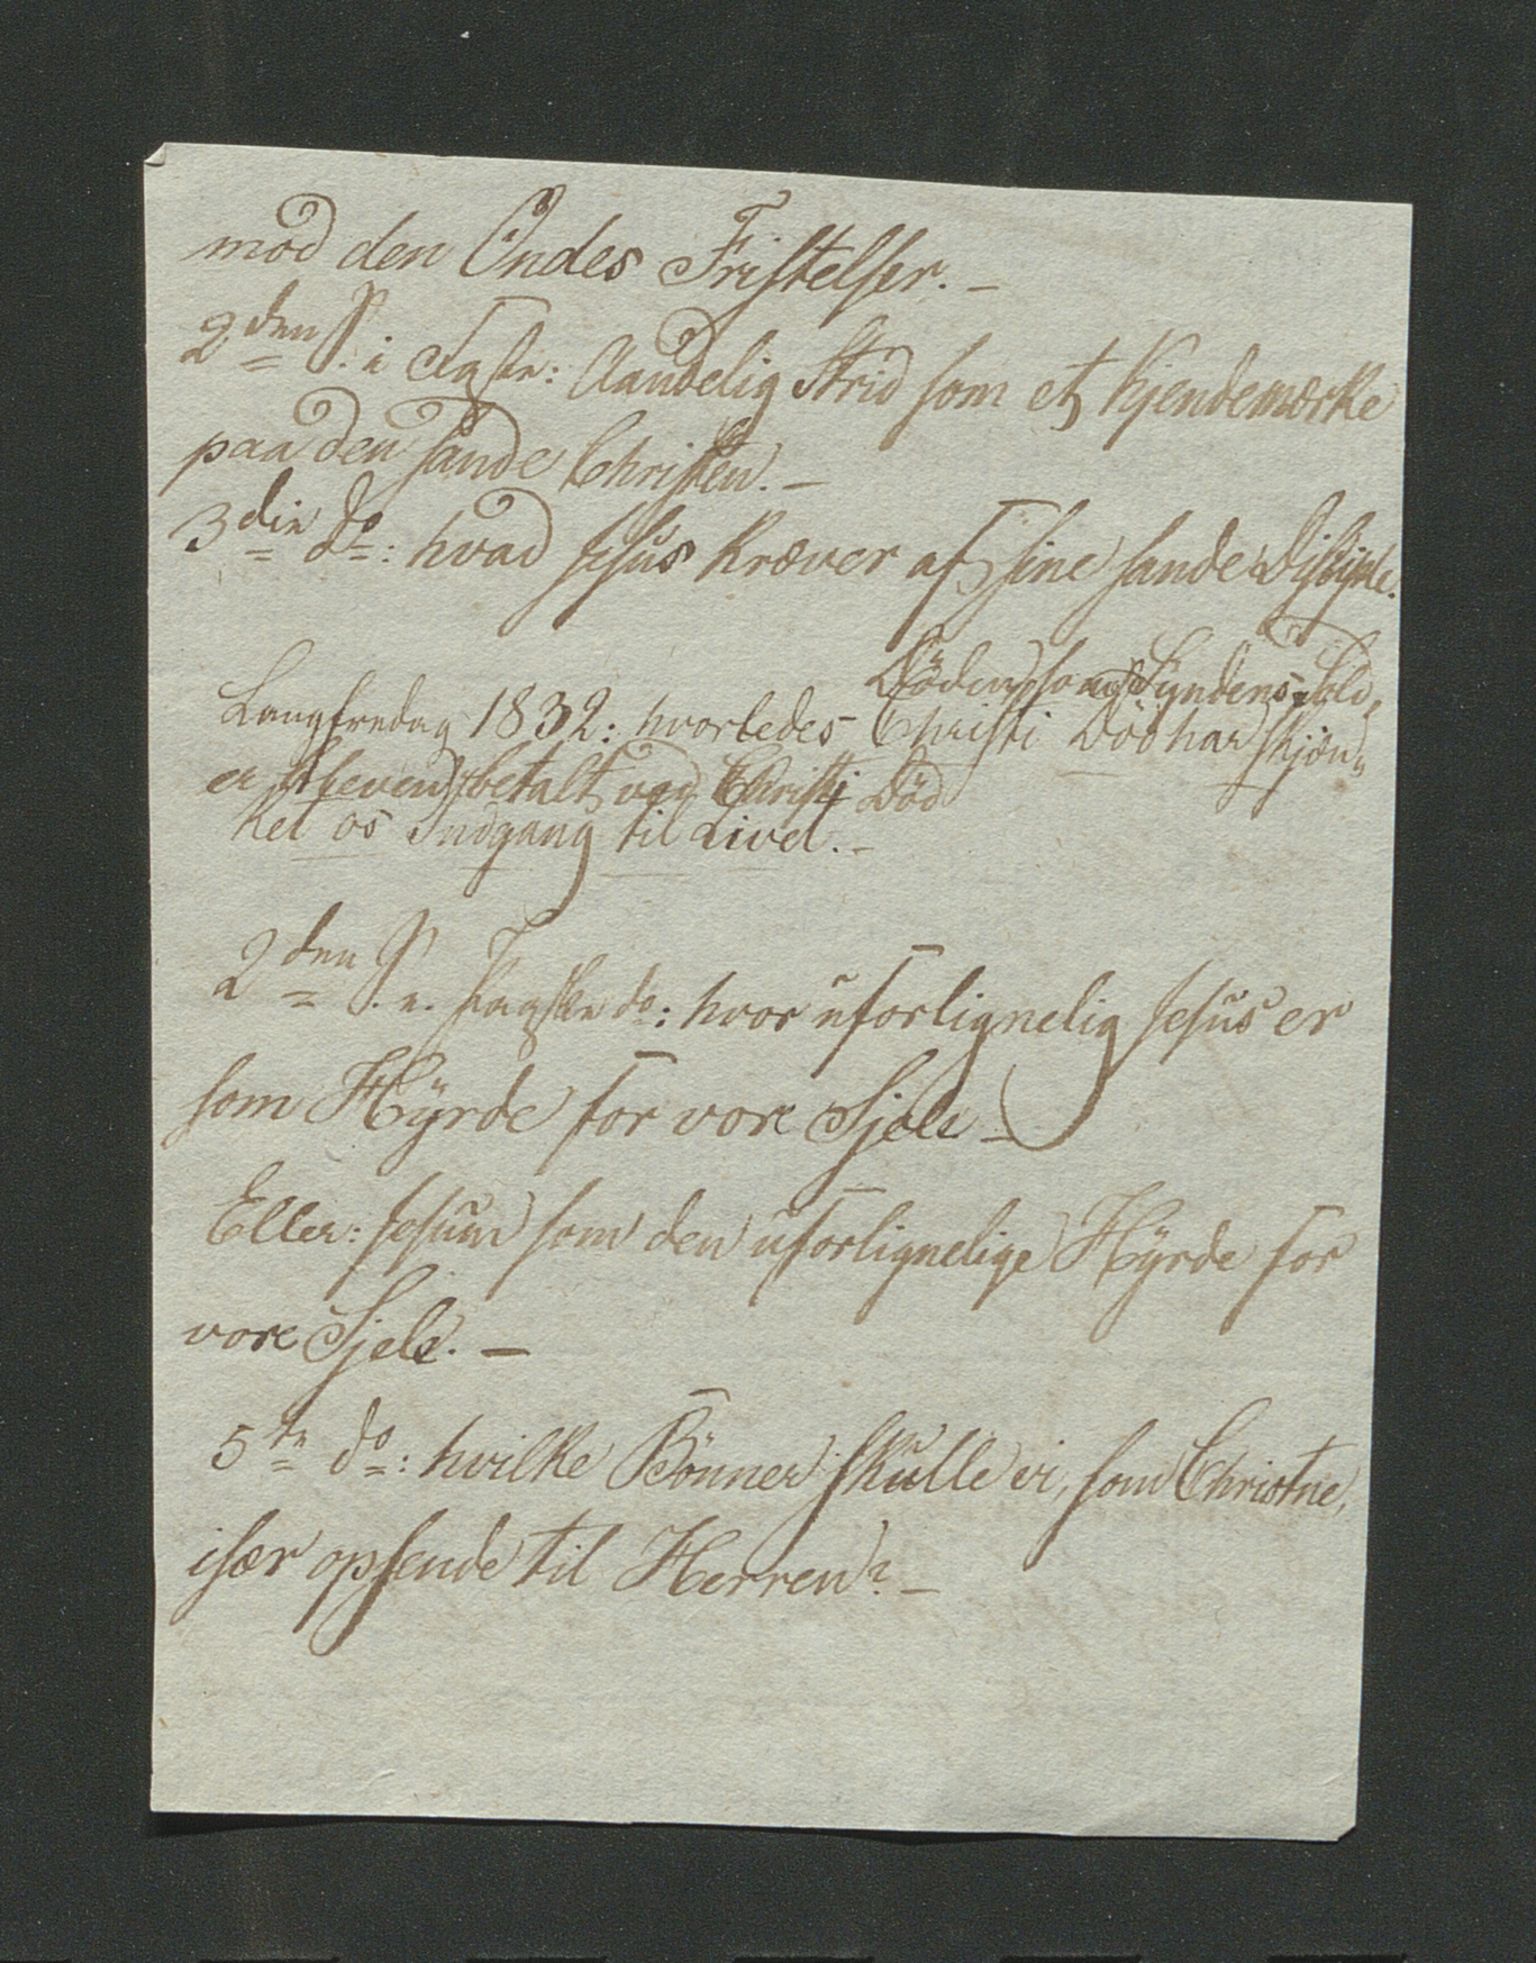 mod den Ondes Fristelser. —
2den S. i Faste: Aandelig Strid som et Kjendemærke
paa den sande Christen. —
3die do: hvad Jesus kræver af sine sande Disciple.
Döden, som Syndens Sold,
Langfredag 1832: hvorledes Christi Död har skjæn-
er bleven betalt ved Christi Död
ket os Indgang til Livet. —
2den S. e. Paaske do: hvor uforlignelig Jesus er
som Hÿrde for vore Sjele —
Eller: Jesum som den uforlignelige Hÿrde for
vore Sjele. —
5te do: hvilke Bönner skulle vi, som Christne,
især opsende til Herren? —